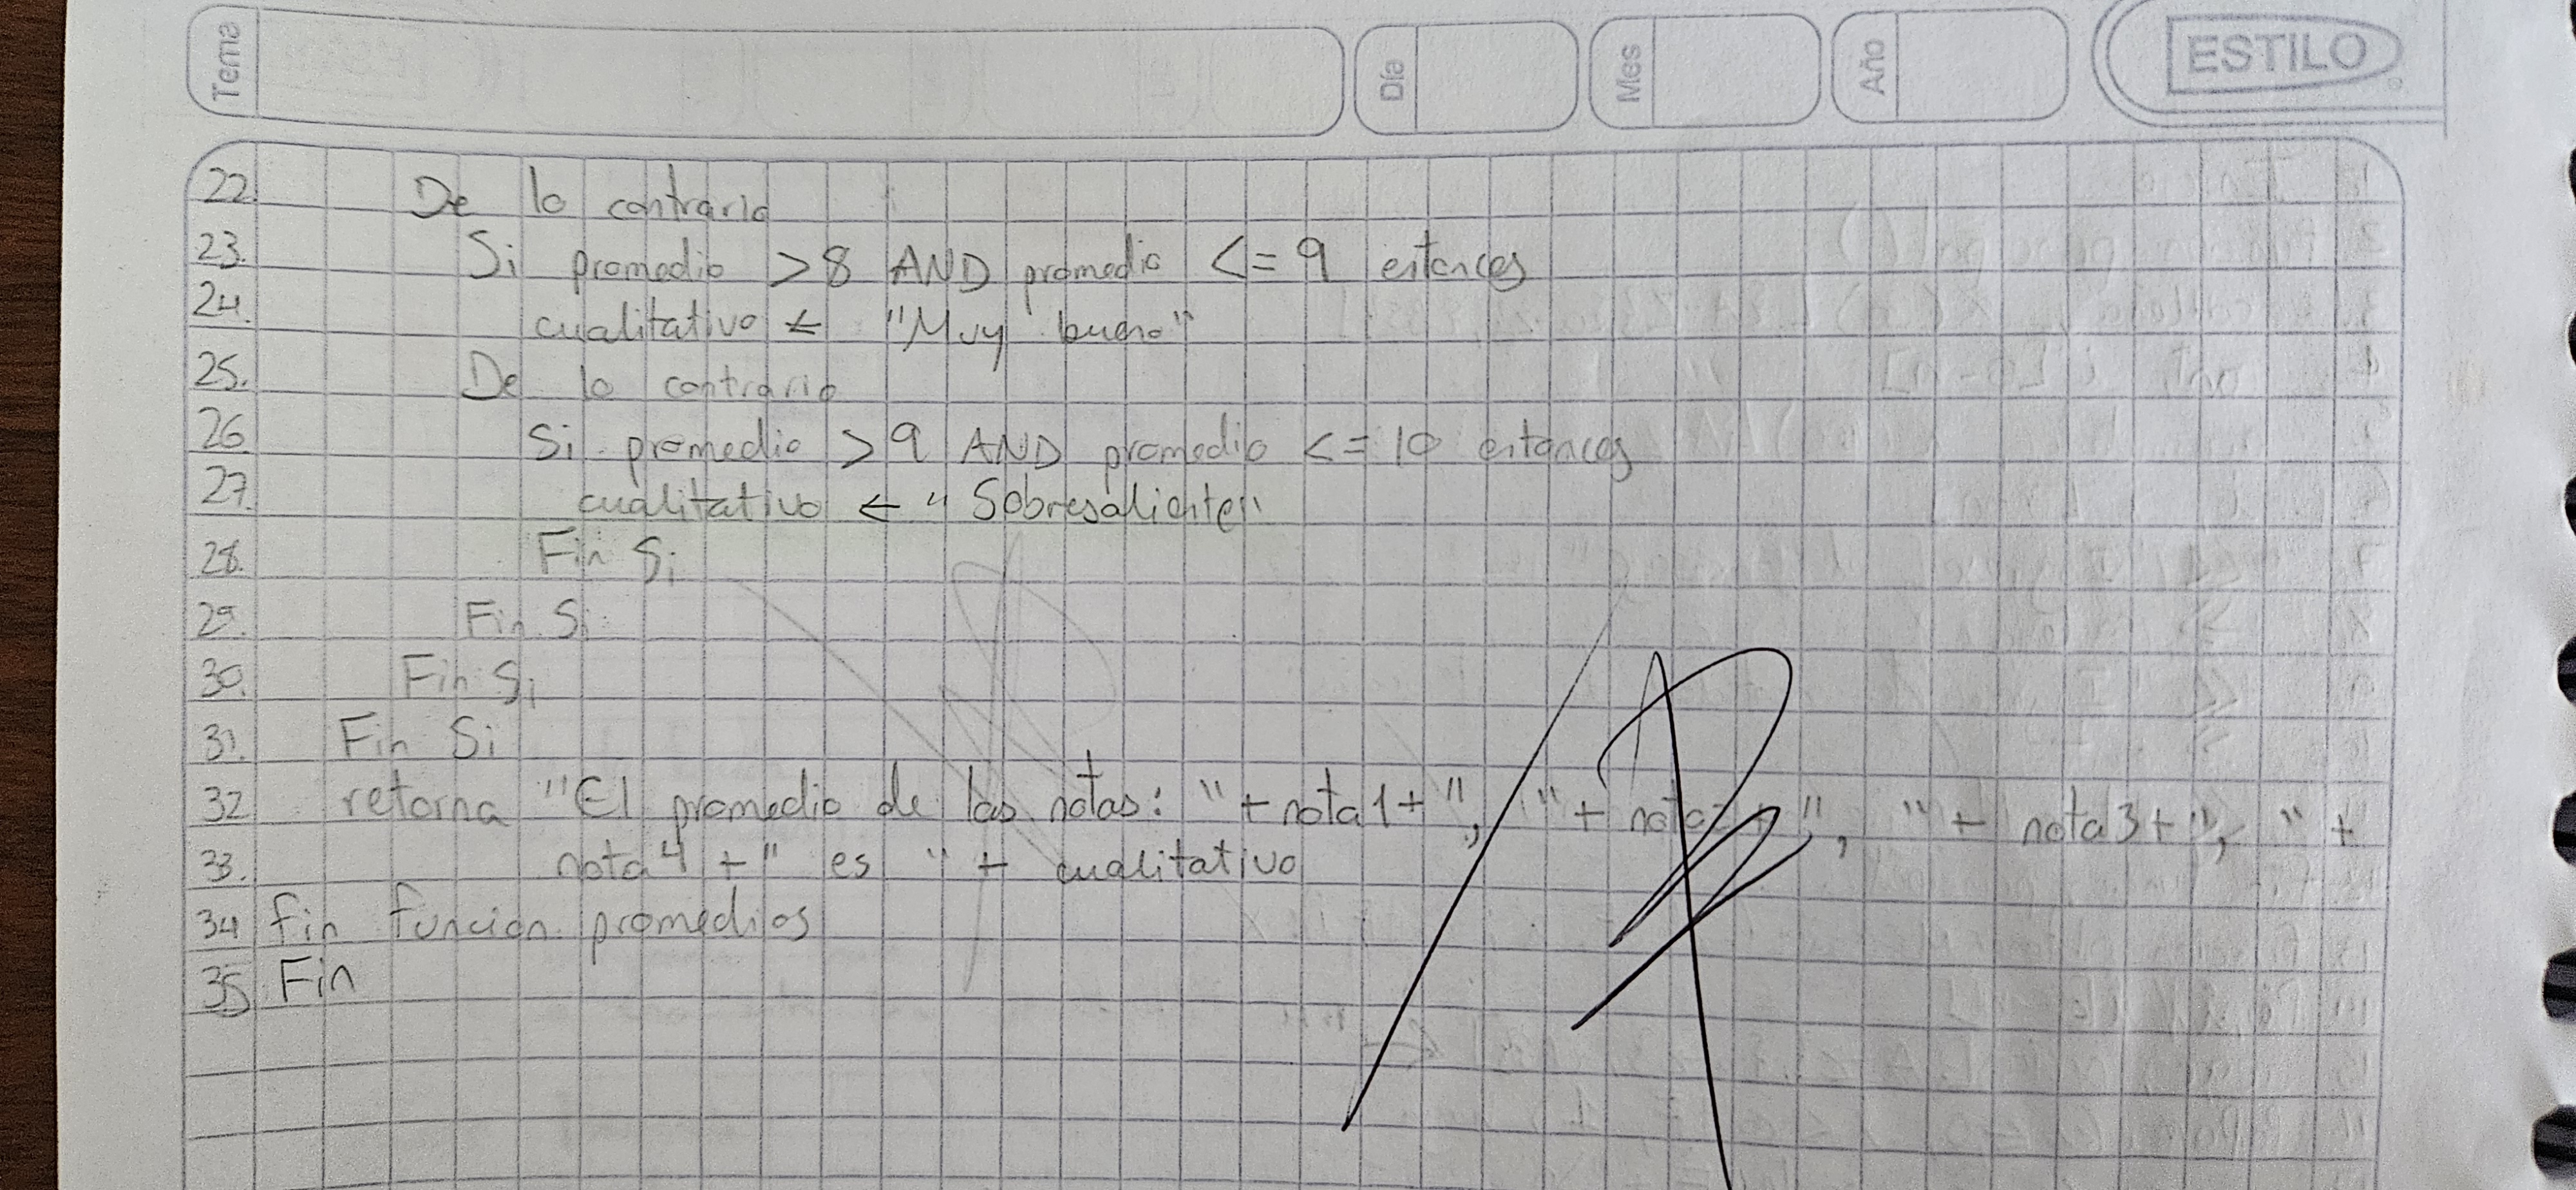 Tema Día Mes Año ESTILO
22. De lo contrario
23. Si promedio > 8 AND promedio <= 9 entonces
24. cualitativo ← "Muy bueno"
25. De lo contrario
26. Si promedio > 9 AND promedio <= 10 entonces
27. cualitativo ← "Sobresaliente"
28. Fin Si
29. Fin Si
30. Fin Si
31. Fin Si
32 retorna "El promedio de las notas: " + nota1 + ", " + nota2 + ", " + nota3 + ", " +
33. nota4 + " es " + cualitativo
34 fin funcion promedios
35 Fin